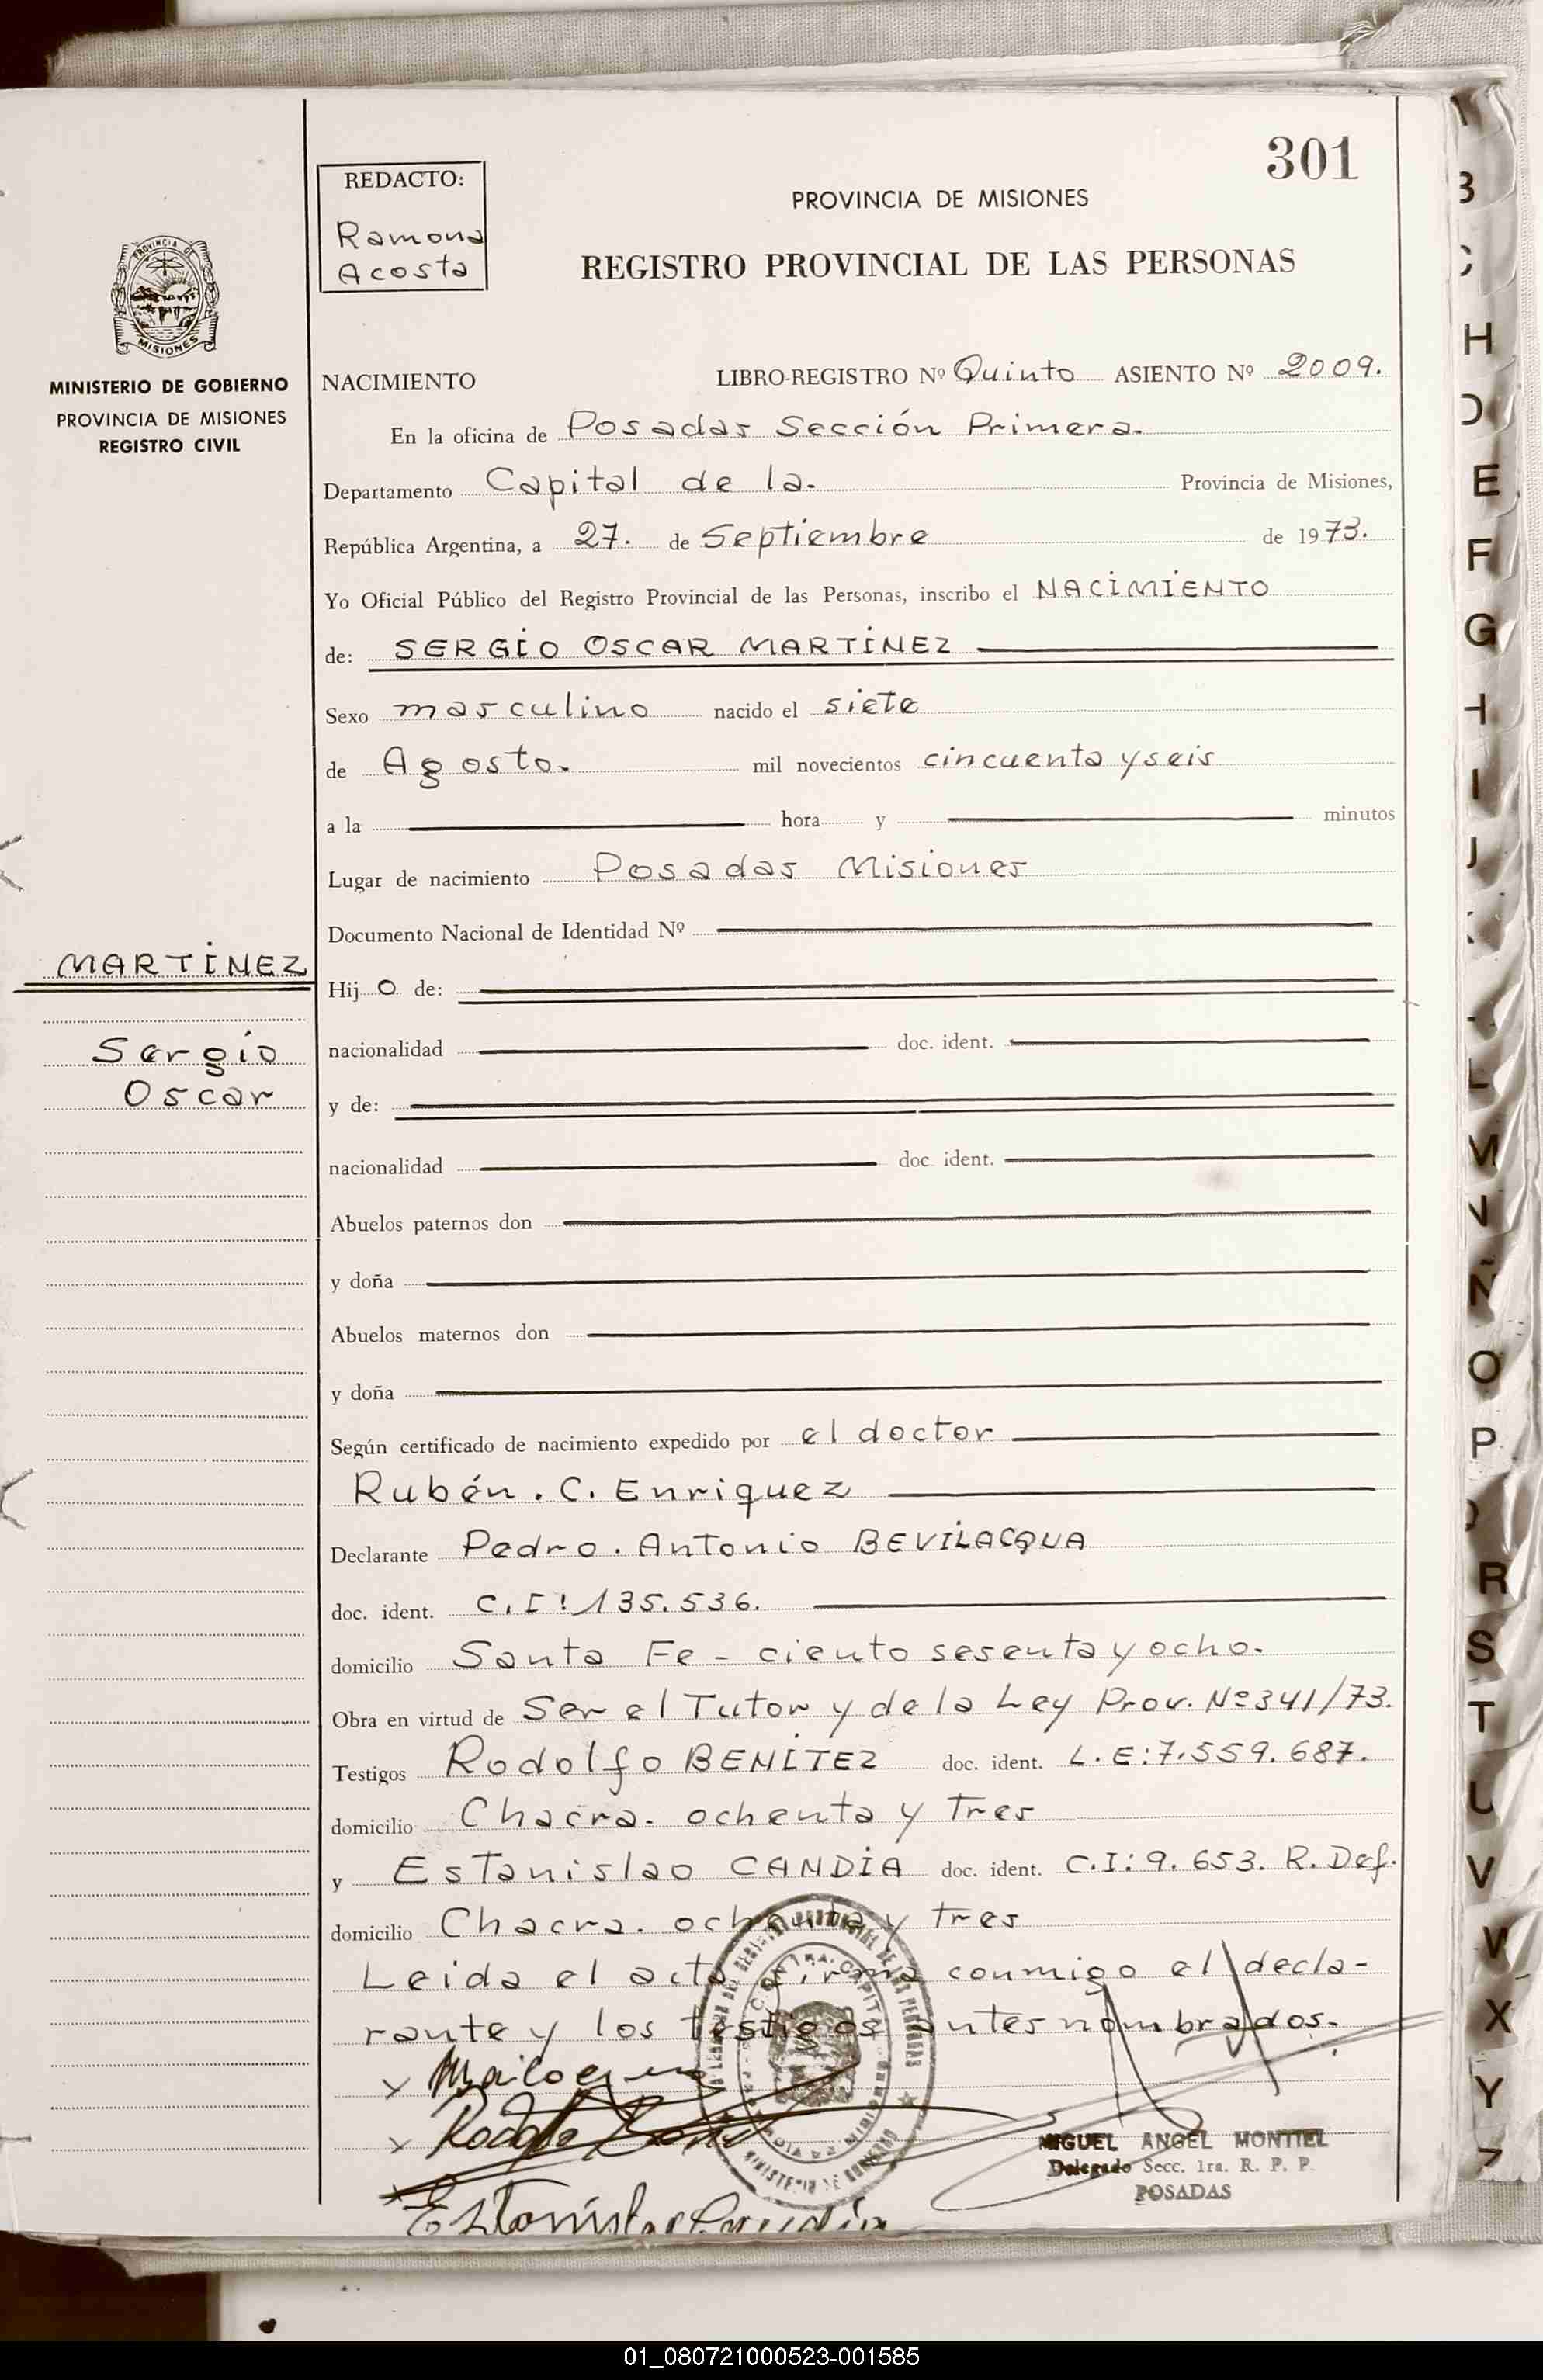 301
REDACTO:
Ramona
Acosta
PROVINCIA DE MISIONES
REGISTRO PROVINCIAL DE LAS PERSONAS
PROVINCIA DE
MISIONES
MINISTERIO DE GOBIERNO
PROVINCIA DE MISIONES
REGISTRO CIVIL
NACIMIENTO LIBRO-REGISTRO Nº Quinto ASIENTO Nº 2009.
En la oficina de Posadas Sección Primera.
Departamento Capital de la. Provincia de Misiones,
República Argentina, a 27. de Septiembre de 1973.
Yo Oficial Público del Registro Provincial de las Personas, inscribo el NACIMIENTO
de: SERGIO OSCAR MARTINEZ
Sexo masculino nacido el siete
de Agosto. mil novecientos cincuenta y seis
a la hora y minutos
Lugar de nacimiento Posadas Misiones
Documento Nacional de Identidad Nº
MARTINEZ
Sergio
Oscar
Hijo de:
nacionalidad doc. ident.
y de:
nacionalidad doc. ident.
Abuelos paternos don
y doña
Abuelos maternos don
y doña
Según certificado de nacimiento expedido por el doctor
Rubén. C. Enriquez
Declarante Pedro. Antonio BEVILACQUA
doc. ident. C.I: 135.536.
domicilio Santa Fe - ciento sesenta y ocho.
Obra en virtud de Ser el Tutor y de la Ley Prov. Nº 341/73.
Testigos Rodolfo BENITEZ doc. ident. L.E: 7.559.687.
domicilio Chacra. ochenta y tres
y Estanislao CANDIA doc. ident. C.I: 9.653. R. Def.
domicilio Chacra. ochenta y tres
Leida el acta firma conmigo el decla-
rante y los testigos antes nombrados.
Estanislao Candia
MIGUEL ANGEL MONTIEL
Delegado Secc. 1ra. R. P. P.
POSADAS
B
C
H
D
E
F
G
H
I
J
L
M
N
Ñ
O
P
R
S
T
U
V
W
X
Y
Z
01_080721000523-001585